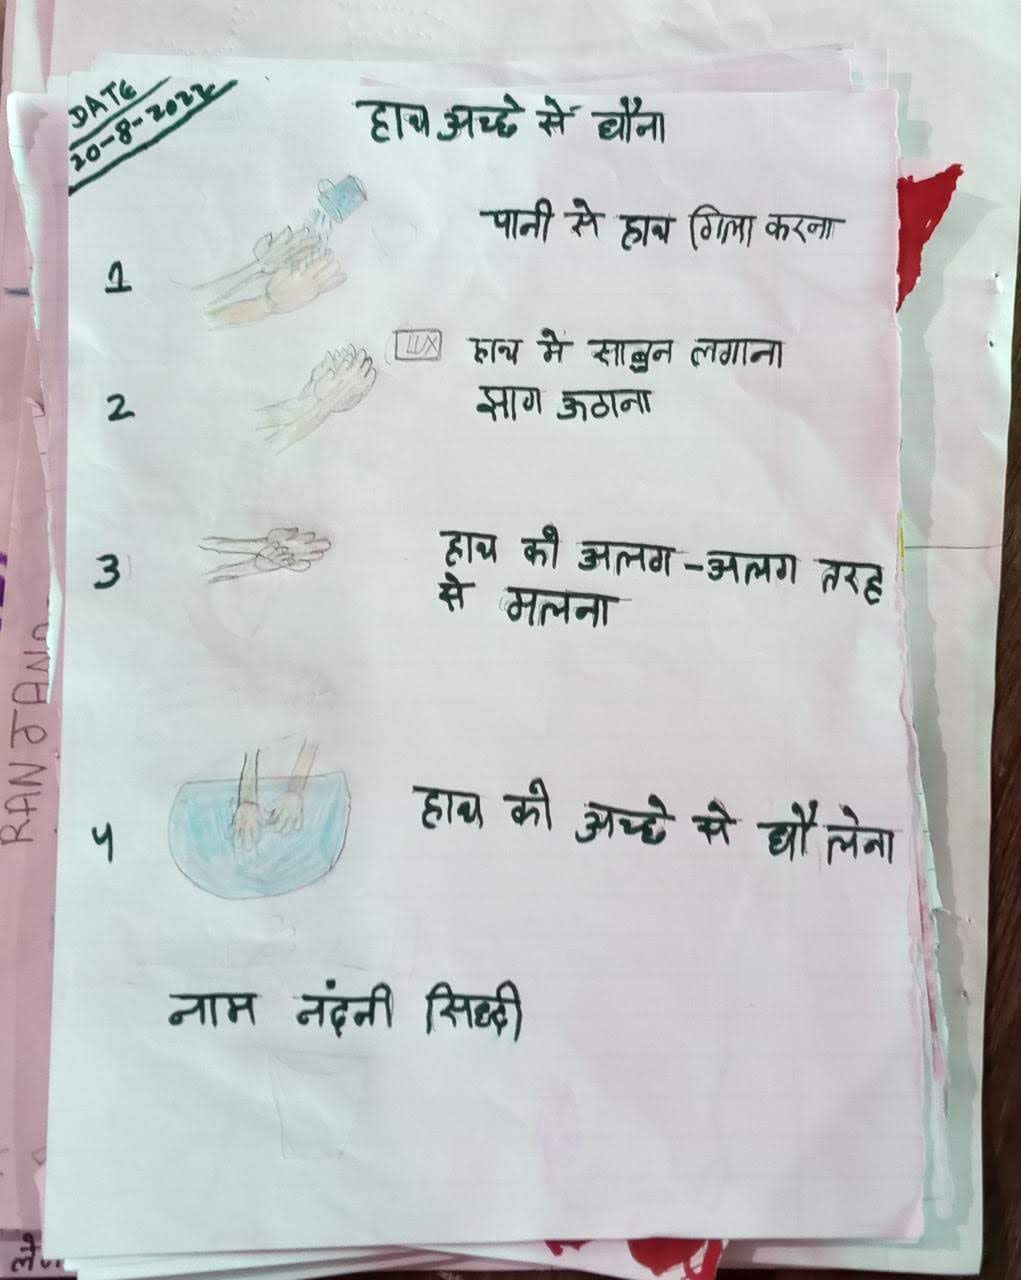 DATE
20-8-2022
हाथ अच्छे से धौना
1
पानी से हाथ गिला करना
2
LUX
हाथ मे साबुन लगाना
झाग ऊठाना
3
हाथ को अलग-अलग तरह
से मलना
4
हाथ को अच्छे से धौ लेना
नाम नंदनी सिध्दी
RANJANA